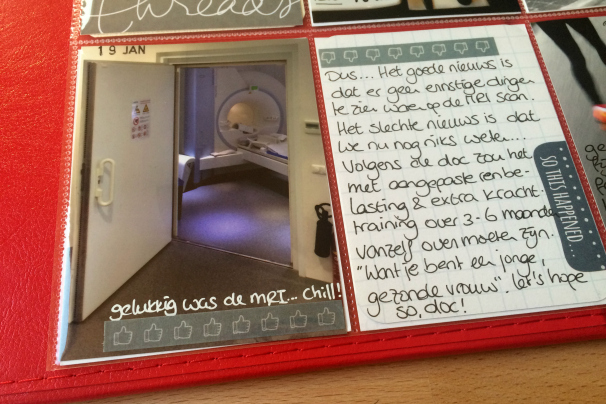 threads
19 JAN
gelukkig was de MRI... chill!
Dus... Het goede nieuws is
dat er geen ernstige dingen
te zien waren op de MRI scan.
Het slechte nieuws is dat
we nu nog niks weten...
Volgens de doc zou het
met aangepaste (en be-
lasting & extra kracht-
training over 3-6 maanden
vanzelf over moeten zijn.
"Want je bent een jonge,
gezonde vrouw". Let's hope
so, doc!
SO THIS HAPPENED...